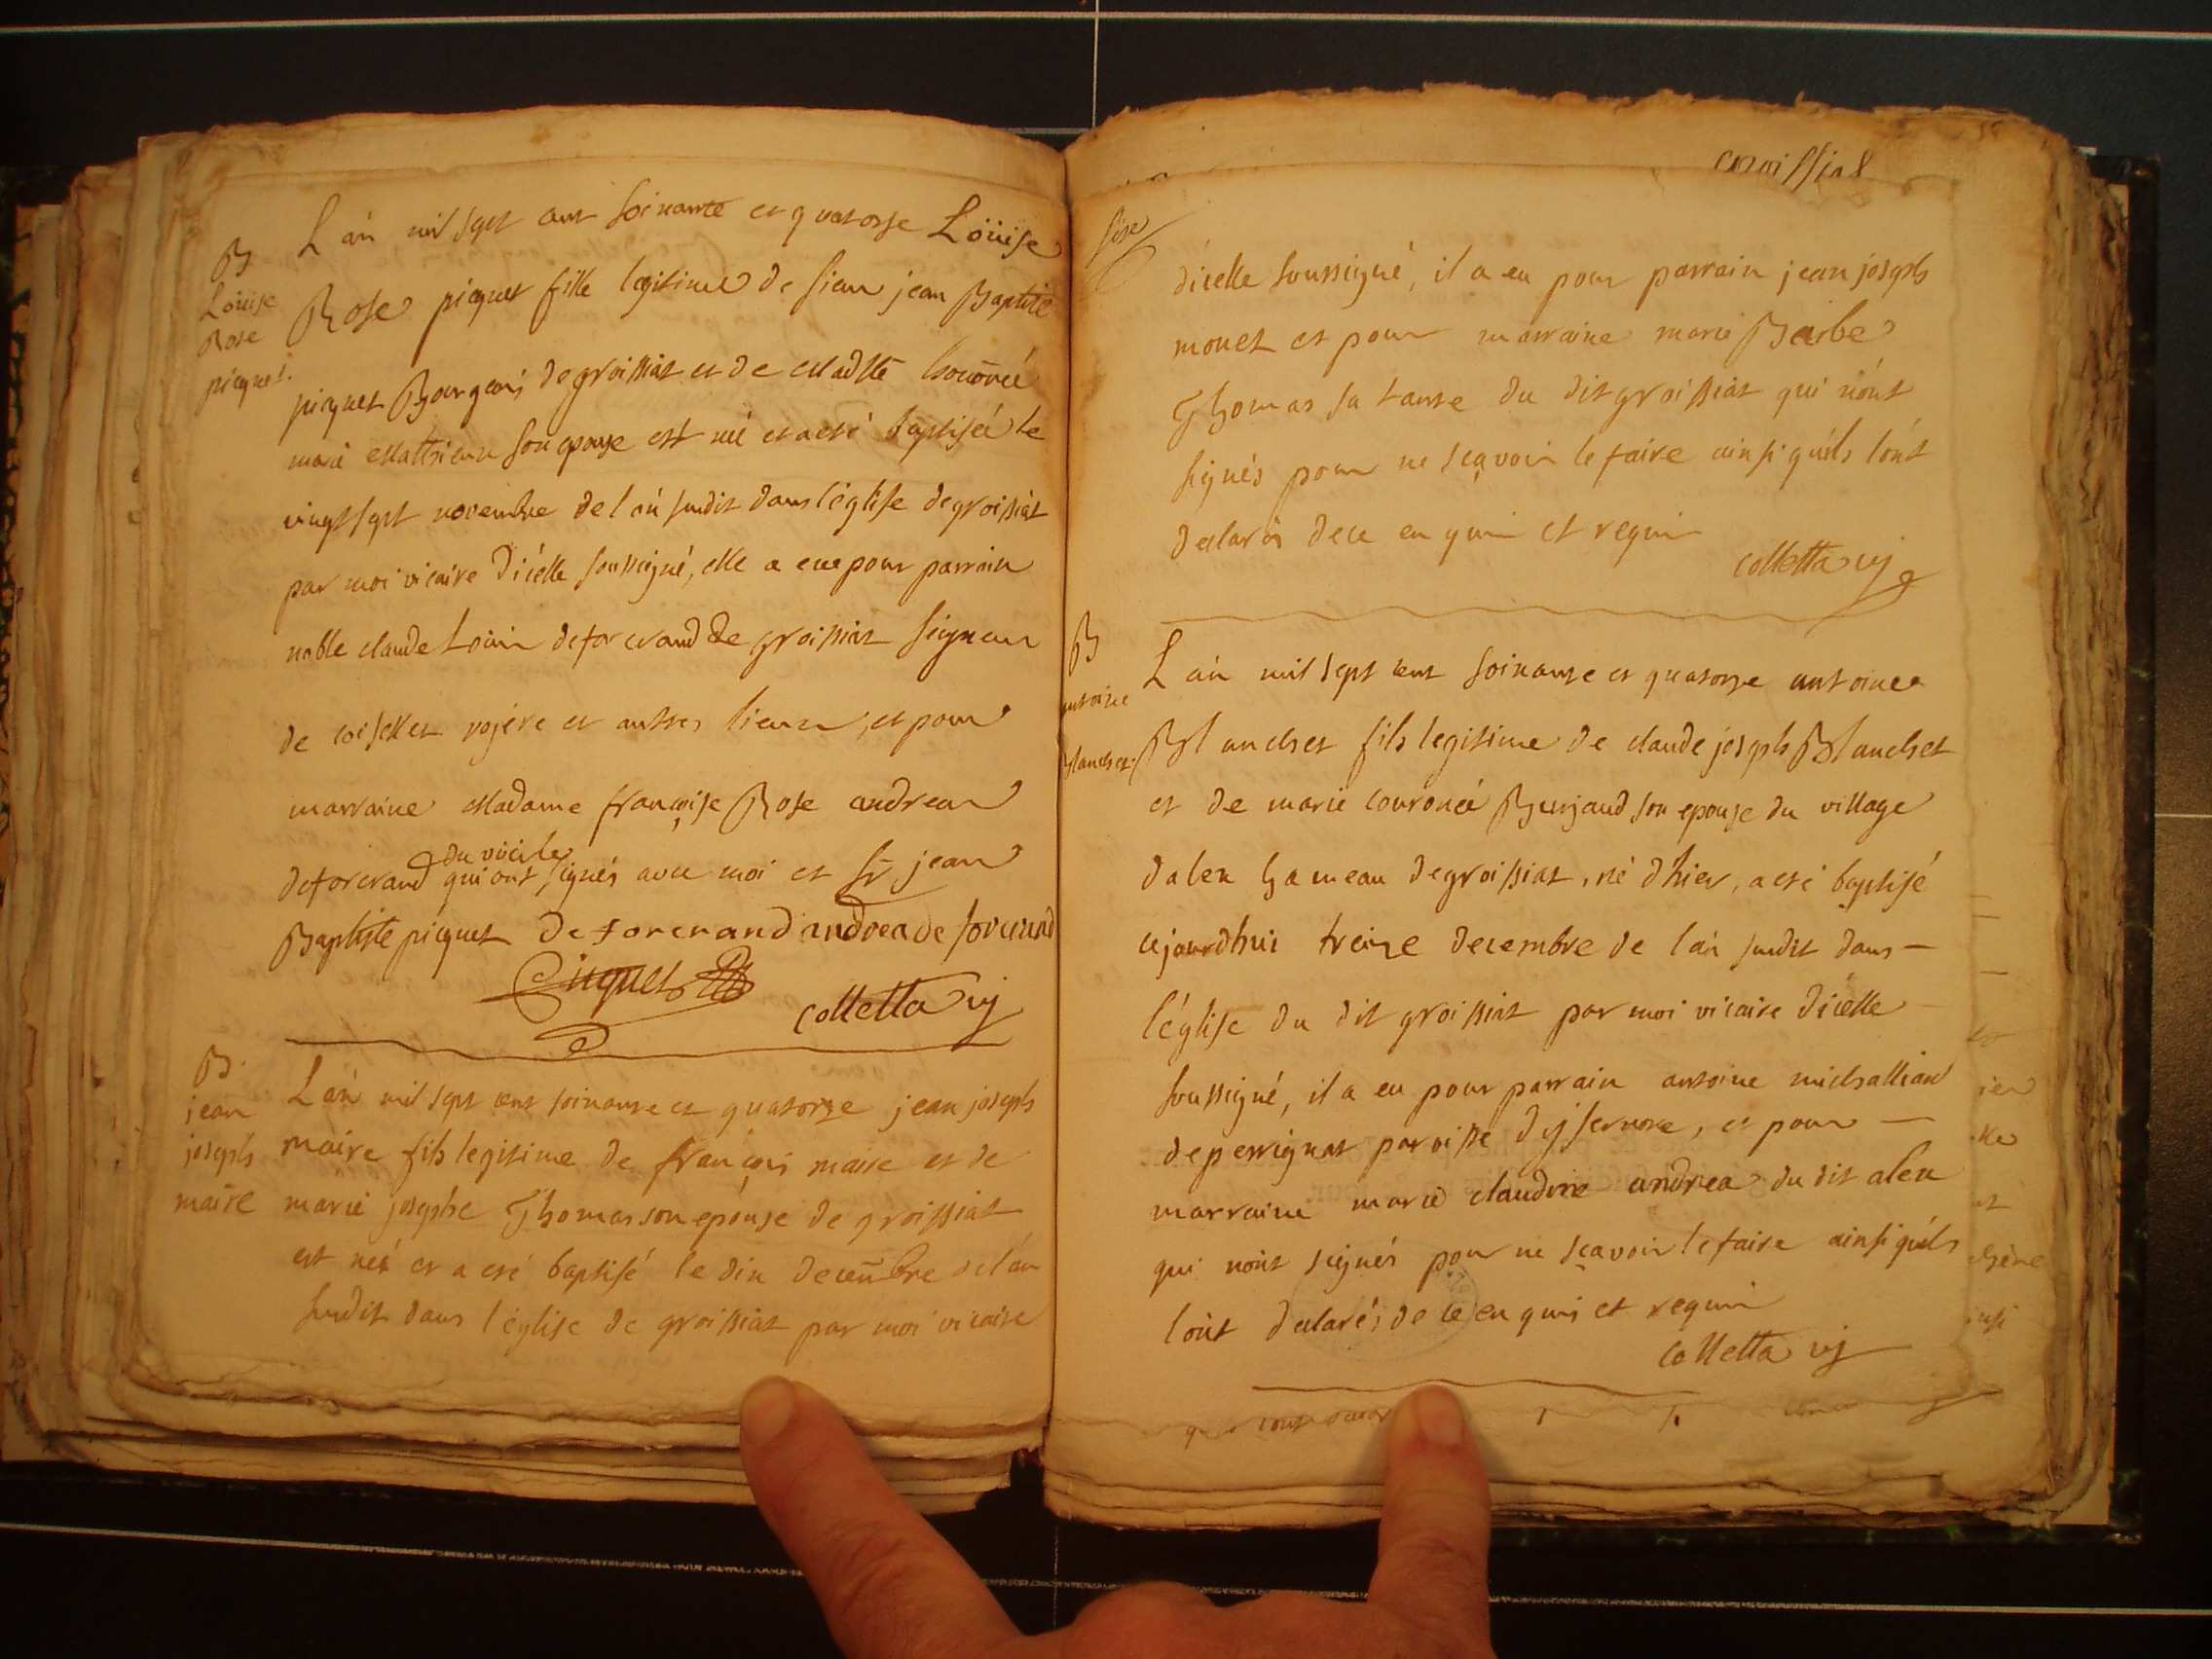 B
Loüise
Rose
picquet.
L'an mil sept cent soixante et quatorse Loüise
Rose picquet fille legitime de sieur jean Baptiste
picquet Bourgeois de groissiat et de
marie Matthieu son epouse est né et a eté baptiséé le
vingt sept novembre de l'an susdit dans l'église de groissiat
par moi vicaire d'icelle soussigné, elle a eue pour parrain
noble claude de forcrand de groissiat seigneur
de coiselet et autres lieux, et pour
marraine Madame françoise Rose andrea
du
deforcrand qui ont signés avec moi et sr jean
Baptiste picquet Deforcrand andrea de forcrand
picquet
colletta vic
B.
jean
joseph
maire
L'an mil sept cent soixante et quatorze jean joseph
maire fils legitime de françois maire et de
marie josephe Thomas son epouse de groissiat
est né et a eté baptisé le dix decembre de l'an
susdit dans l'église de groissiat par moi vicaire
groissiat
d'icelle soussigné, il a eu pour parrain jean joseph
monet et pour marraine marie Barbe
Thomas sa tante du dit groissiat qui n'ont
signés pour ne sçavoir le faire ainsi qu'ils l'ont
declarés de ce enquis et requis
colletta vic
B
antoine
Blanchet.
L'an mil sept cent soixante et quatorze antoine
Blanchet fils legitime de claude joseph Blanchet
et de marie couronéé Burjaud son epouse du village
d'alex hameau de groissiat, né d'hier, a eté baptisé
cejourdhui treize decembre de l'an susdit dans
l'église du dit groissiat par moi vicaire d'icelle
soussigné, il a eu pour parrain antoine michallian
de perrignat paroisse d'ysernore, et pour
marraine marie claudine andrea du dit alex
qui n'ont signés pour ne sçavoir le faire ainsi qu'ils
l'ont declarés de ce enquis et requis
colletta vic